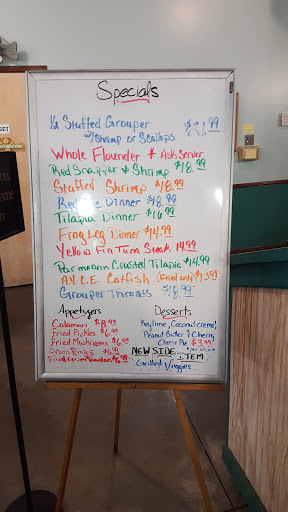 Specials
1/2 Stuffed Grouper
w/ Shrimp or Scallops
Whole Flounder * Ask Server
Red Snapper & Shrimp $18.99
Stuffed Shrimp $18.99
Dinner $18.99
Tilapia Dinner $16.99
Frog Leg Dinner $14.99
Yellow Fin Tuna Steak 14.99
Parmesan Crusted Tilapia $14.99
A.Y.C.E. Catfish
Grouper Throats
Appetizers
Calamari $8.99
Fried Pickles $6.99
Fried Mushrooms $6.99
Onion Rings $6.99
Fried Green Tomatoes
Desserts
Key lime, Coconut creme
Peanut Butter & Cherry
Cheese Pie $3.99
NEW SIDE ITEM
Grilled Veggies